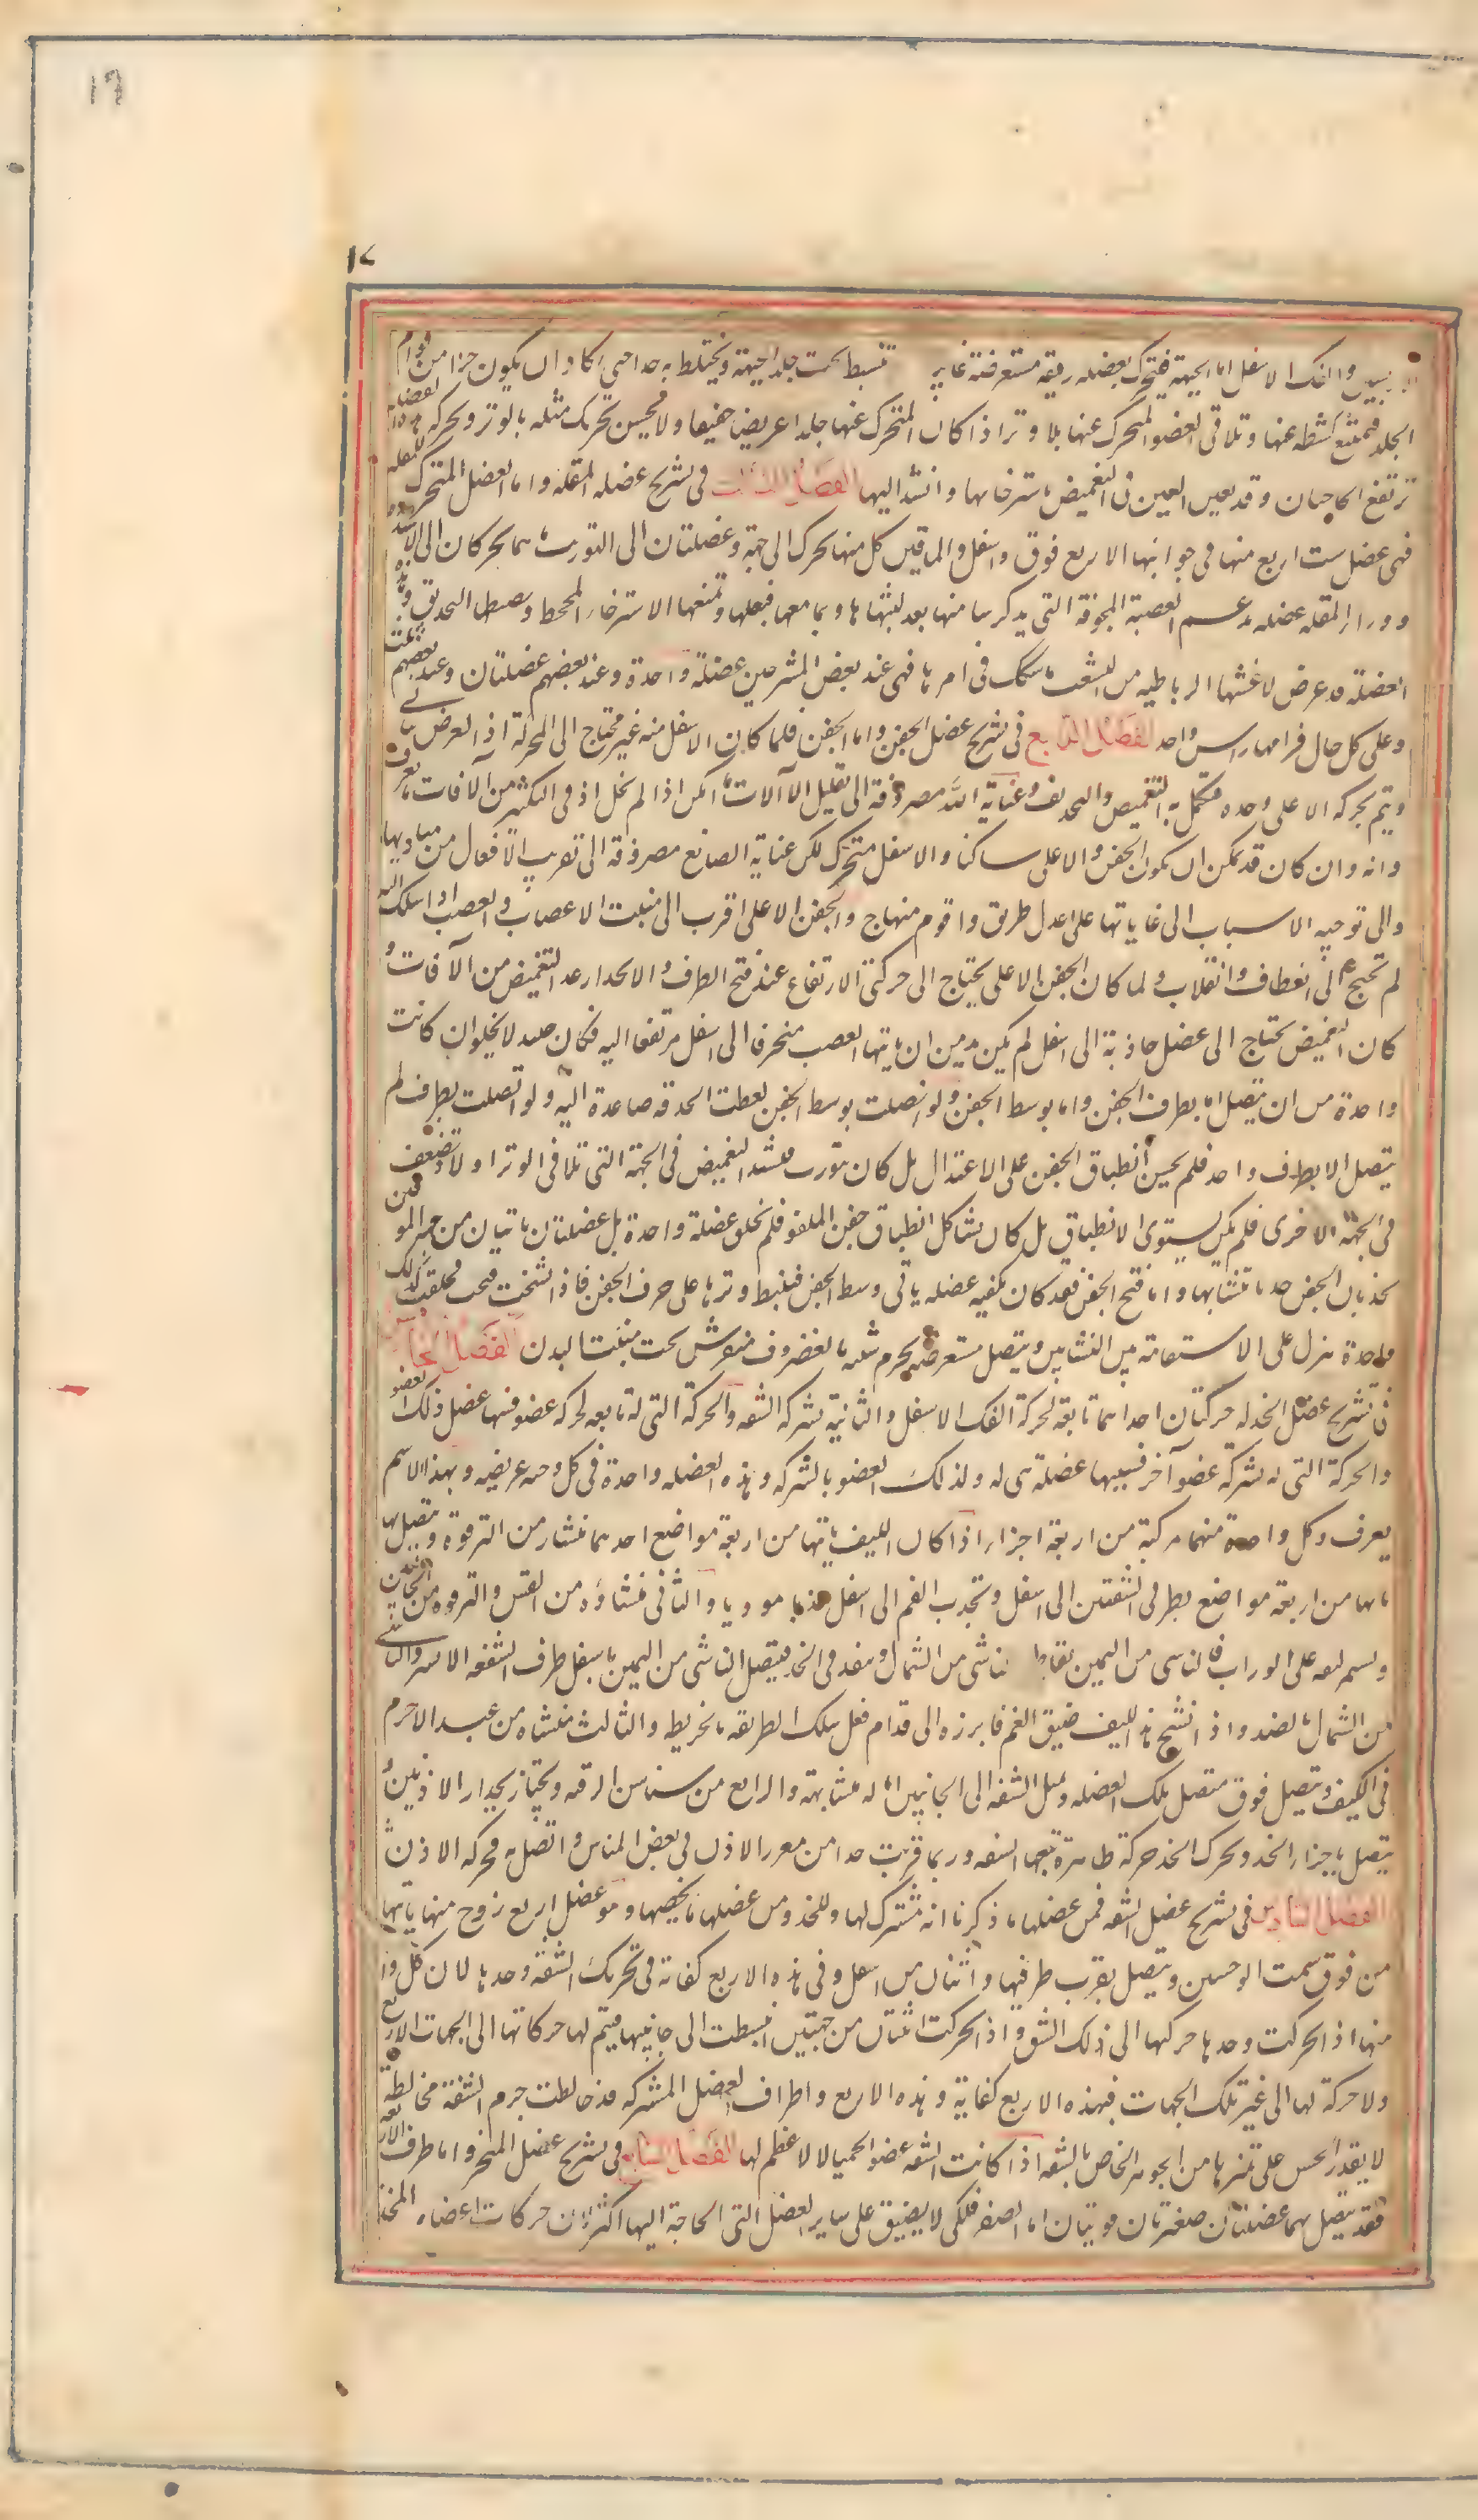 ١٦
١٧
والفك الاسفل اما الجبهة فتتحرك بعضله رقيقة مستعرضة غشايية تنبسط تحت جلد الجبهة ويختلط به جدا حتى يكاد ان يكون جزا من قوام
الجلد فيمتنع كشطه عنها وتلاقى العضو المتحرك عنها بلا وتر اذ كان المتحرك عنها جلدا عريضا خفيفا ولا يحسن تحريك مثله بالوتر وبحركة هذه العضلة
ترتفع الحاجبان وقد يعين العين فى التغميض باسترخايها وانشد اليها الفصل الثالث فى تشريح عضله المقله واما العضل المتحرك للمقله
فهى عضل ست اربع منها فى جوانبها الاربع فوق واسفل والماقين كل منها يحرك الى جهة وعضلتان الى التوريب ما هما يحركان الى الاستدارة
وورا المقله عضله تدعم العصبة المجوفة التى يذكر ما منها بعد لتشبثها بها وبما معها فيقلها وتمنعها الاسترخاء المجحظ ويضبطها عند التحديق وهذه
العضلة قد عرض لاغشيتها الرباطيه من التشعب ما شكك فى امرها فهى عند بعض المشرحين عضلة واحدة وعند بعضهم عضلتان وعند بعضهم ثلث
وعلى كل حال فراسها راس واحد الفصل الرابع فى تشريح عضل الجفن واما الجفن فلما كان الاسفل منه غير محتاج الى الحركة اذ الغرض ياتى
ويتم بحركة الاعلى وحده فيكمل به التغميض والتحديق وعناية الله مصروفة الى تقليل الآلات ما امكن اذا لم يخل اذ فى التكثير من الآفات ما يعرف
وانه وان كان قد يمكن ان يكون الجفن الاعلى ساكنا والاسفل متحرك لكن عناية الصانع مصروفة الى تقريب الافعال من مباديها
والى توجيه الاسباب الى غاياتها على اعدل طريق واقوم منهاج والجفن الاعلى اقرب الى منبت الاعصاب والعصب اذا سلك اليه
لم يحتج الى انعطاف وانقلاب ولما كان الجفن الاعلى يحتاج الى حركتى الارتفاع عند فتح الطرف والانحدار عند التغميض من الآفات و
كان التغميض يحتاج الى عضل جاذبة الى اسفل لم يكن بد من ان ياتيها العصب منحرفا الى اسفل مرتفعا اليه فكان حينئذ لا يخلو ان كانت
واحدة من ان يتصل اما بطرف الجفن واما بوسط الجفن ولو اتصلت بوسط الجفن لغطت الحدقة صاعدة اليه ولو اتصلت بطرف لم
يتصل الا بطرف واحد فلم يحسن انطباق الجفن على الاعتدال بل كان يتورب فيشتد التغميض فى الجهة التى تلاقى الوتر اولا ويضعف
فى الجهة الاخرى فلم يكن يستوى الانطباق بل كان يشاكل انطباق جفن الملقو فلم يخلق عضلة واحدة بل عضلتان ياتيان من جهة الموقين
يجذبان الجفن جذبا متشابها واما فتح الجفن فقد كان يكفيه عضله ياتى وسط الجفن فينبسط وترها على حرف الجفن فاذا تشنجت فتحت فخلقت لذلك
واحدة ينزل على الاستقامة بين الغشايين ويتصل مستعرضة بجرم شبيه بالغضروف منفرش تحت منبت الهدب الفصل الخامس
فى تشريح عضل الخد له حركتان احداهما تابعة لحركة الفك الاسفل والثانية بشركة الشفه والحركة التى له تابعه لحركة عضو فسببها عضل ذلك العضو
والحركة التى له بشركة عضو آخر فسببها عضلة هى له ولذلك العضو بالشركه وهذه العضله واحدة فى كل وجنه عريضه وبهذا الاسم
يعرف وكل واحدة منهما مركبة من اربعة اجزا اذا كان الليف ياتيها من اربعة مواضع احدهما منشاه من الترقوة ويتصل نها
ياتها من اربعة مواضع بطرفى الشفتين الى اسفل وتجذب الفم الى اسفل جذبا موربا والثانى منشاؤه من القس والترقوه من الجانبين
ويستمر ليفه على الوراب فالناشى من اليمين يقاطع الناشى من الشمال وينفذ فى الخد فيتصل الناشى من اليمين باسفل طرف الشفه الايسر والناشى
من الشمال بالضد واذا تشنج هذا الليف ضيق الفم فابرزه الى قدام فعل سلك الخريطه بالخريطه والثالث منشاه من عند الاخرم
فى الكتف ويتصل فوق متصل تلك العضله ويميل الشفه الى الجانبين اماله متشابهة والرابع من سناسن الرقبه ويجتاز بحذا الاذنين و
يتصل باجزا الخد ويحرك الخد حركة ظاهرة تتبعها الشفه وربما قربت جدا من مغرز الاذن فى بعض الناس واتصل به فحركه الاذن
الفصل السادس فى تشريح عضل الشفه فمن عضلها ما ذكرنا انه مشترك لها وللخد ومن عضلها ما يخصها وهو عضل اربع زوج منها ياتيها
من فوق سمت الوجنتين ويتصل بقرب طرفيها واثنان من اسفل وفى هذه الاربع كفاية فى تحريك الشفة وحدها لان كل واحدة
منها اذا تحركت وحدها حركتها الى ذلك الشق واذا تحركت اثنتان من جهتين انبسطت الى جانبيها فيتم لها حركاتها الى الجهات الاربع
ولا حركة لها الى غير تلك الجهات فهذه الاربع كفاية وهذه الاربع واطراف العضل المشتركه قد خالطت جرم الشفة مخالطة
لا يقدر الحس على تميزها من الجوهر الخاص بالشفه اذا كانت الشفه عضوا لحميا لا عظم لها الفصل السابع فى تشريح عضل المنخر واما طرف الارنبه
فقد يتصل بهما عضلتان صغيرتان قويتان اما الصغر فلكى لا يضيق على ساير العضل التى الحاجة اليها اكثر لان حركات اعضاء الخد